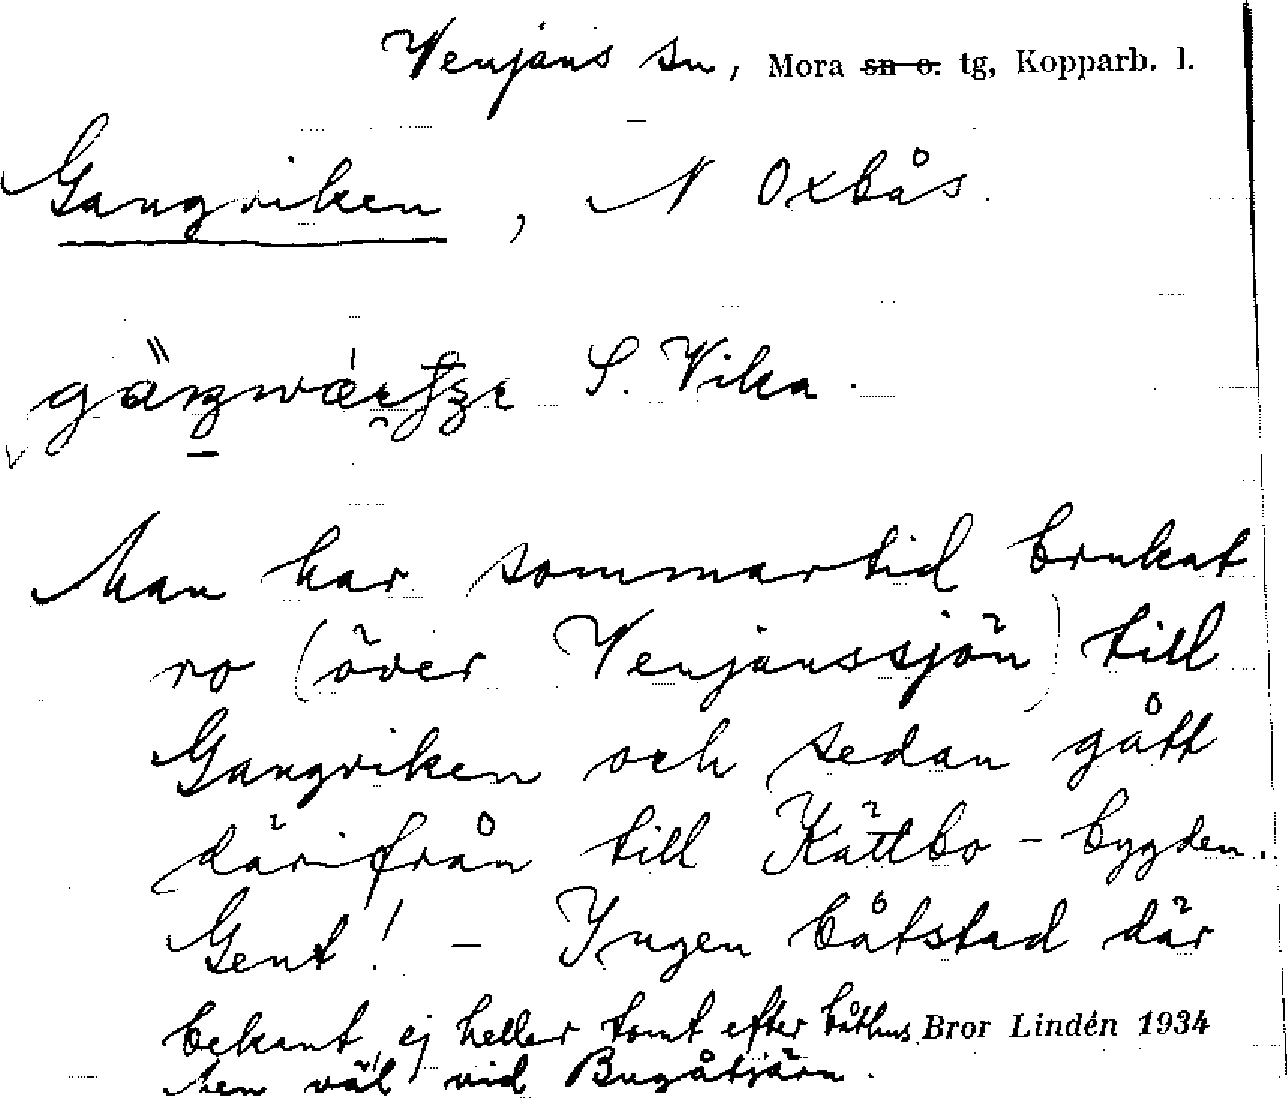 Venjans sn, Mora sn o. tg, Kopparb. l.
Gangviken, N Oxbås.
S. Vika.
Man har sommartid brukat
ro (över Venjanssjön) till
Gangviken och sedan gått
därifrån till Kättbo-bygden.
Gent! – Ingen båtstad där
bekant, ej heller tomt efter båthus, Bror Lindén 1934
Men väl vid Bugåtjärn.